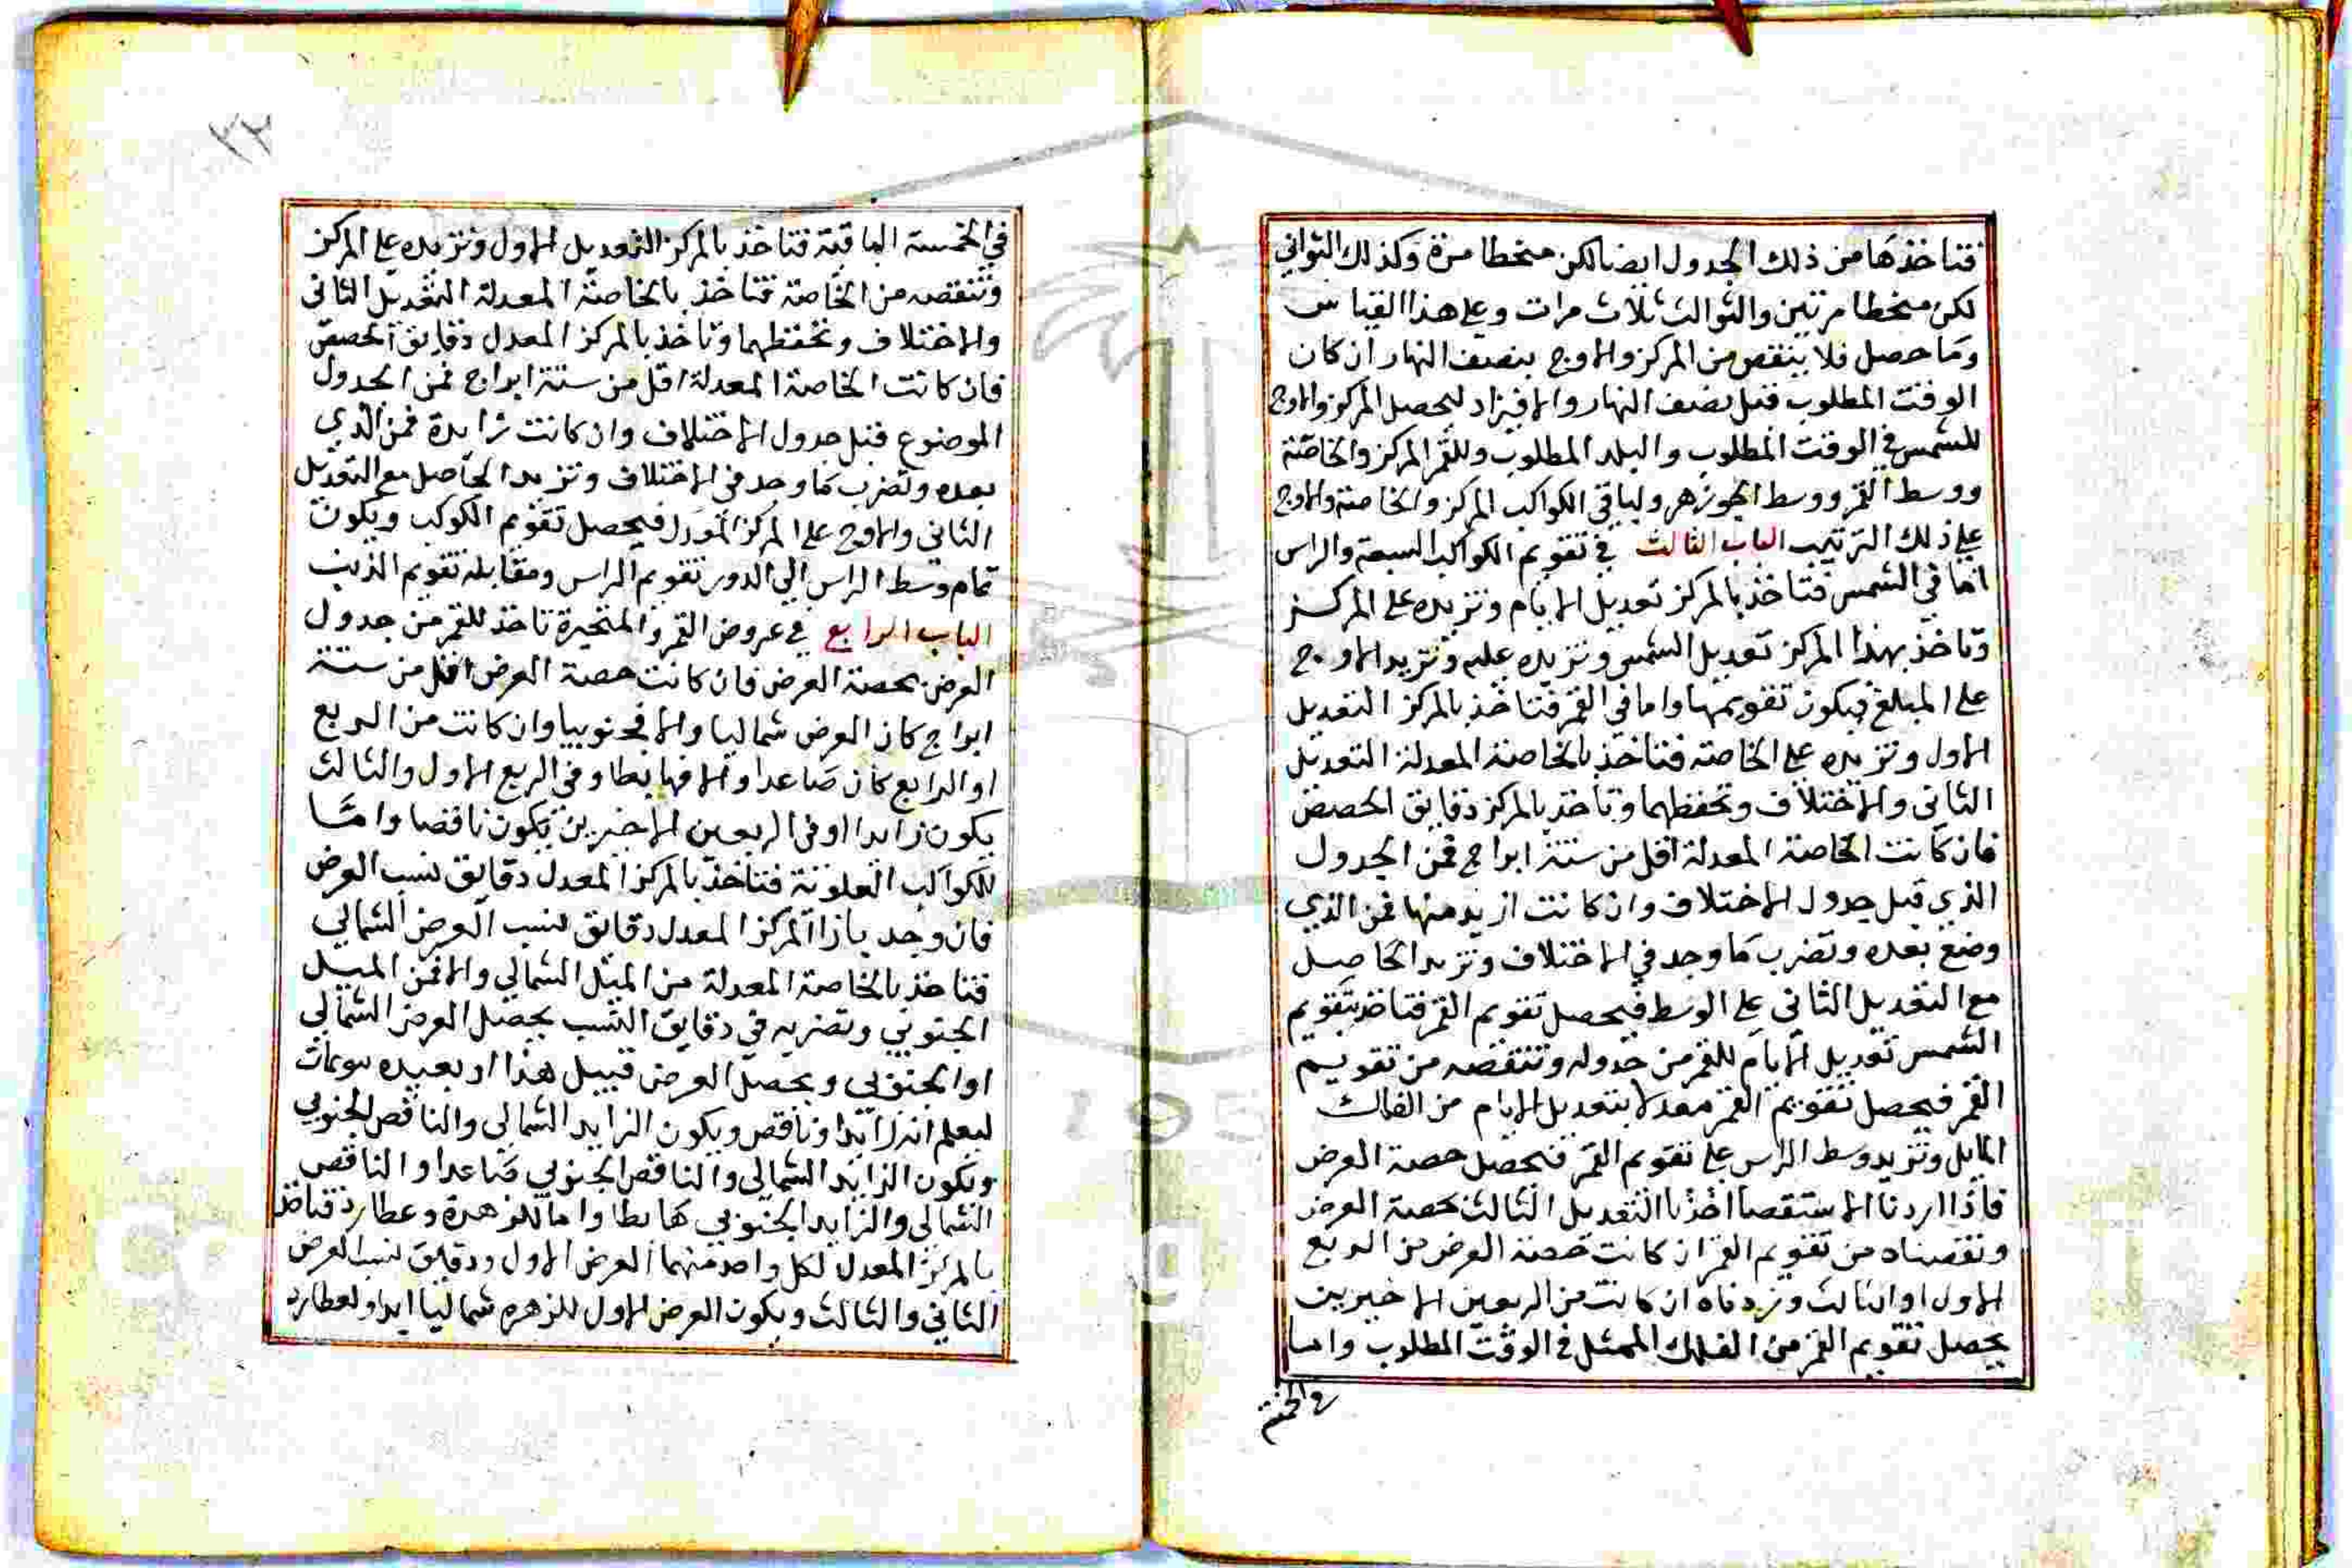 فتاخذها من ذلك الجدول ايضا لكن منحطا مرة وكذلك الثواني
لكن منحطا مرتين والثوالث ثلاث مرات وعلى هذا القياس
وما حصل فلا ينقص من المركز والاوج بنصف النهار ان كان
الوقت المطلوب قبل نصف النهار والا فيزاد ليحصل المركز والاوج
للشمس في الوقت المطلوب والبلد المطلوب وللقمر المركز والخاصة
ووسط القمر ووسط الجوزهر ولباقي الكواكب المركز والخاصة والاوج
على ذلك الترتيب الباب الثالث في تقويم الكواكب السبعة والراس
اما في الشمس فتاخذ بالمركز تعديل الايام وتزيده على المركز
وتاخذ بهذا المركز تعديل الشمس وتزيده عليه وتزيد الاوج
على المبلغ فيكون تقويمها واما في القمر فتاخذ بالمركز التعديل
الاول وتزيده على الخاصة فتاخذ بالخاصة المعدلة التعديل
الثاني والاختلاف وتحفظهما وتاخذ بالمركز دقايق الحصص
فان كانت الخاصة المعدلة اقل من ستة ابراج فمن الجدول
الذي قبل جدول الاختلاف وان كانت ازيد منها فمن الذي
وضع بعده وتضرب ما وجد في الاختلاف وتزيد الحاصل
مع التعديل الثاني على الوسط فيحصل تقويم القمر فتاخذ بتقويم
الشمس تعديل الايام للقمر من جدوله وتنقصه من تقويم
القمر فيحصل تقويم القمر معدلا بتعديل الايام من الفلك
المايل وتزيد وسط الراس على تقويم القمر فيحصل حصة العرض
فاذا اردنا الاستقصا اخذنا التعديل الثالث بحصة العرض
ونقصناه من تقويم القمر ان كانت حصة العرض من الربع
الاول او الثالث وزدناه ان كانت من الربعين الاخيرين
يحصل تقويم القمر من الفلك الممثل في الوقت المطلوب واما
في الخمسة
٣٢
في الخمسة الباقية فتاخذ بالمركز التعديل الاول وتزيده على المركز
وتنقصه من الخاصة فتاخذ بالخاصة المعدلة التعديل الثاني
والاختلاف وتحفظهما وتاخذ بالمركز المعدل دقايق الحصص
فان كانت الخاصة المعدلة اقل من ستة ابراج فمن الجدول
الموضوع قبل جدول الاختلاف وان كانت زايدة فمن الذي
بعده وتضرب ما وجد في الاختلاف وتزيد الحاصل مع التعديل
الثاني والاوج على المركز المعدل فيحصل تقويم الكوكب ويكون
تمام وسط الراس الى الدور تقويم الراس ومقابله تقويم الذنب
الباب الرابع في عروض القمر والمتحيرة تاخذ للقمر من جدول
العرض بحصة العرض فان كانت حصة العرض اقل من ستة
ابراج كان العرض شماليا والا فجنوبيا وان كانت من الربع
او الرابع كان صاعدا والا فهابطا وفي الربع الاول والثالث
يكون زايدا وفي الربعين الاخيرين يكون ناقصا واما
للكواكب العلوية فتاخذ بالمركز المعدل دقايق نسب العرض
فان وجد بازا المركز المعدل دقايق نسب العرض الشمالي
فتاخذ بالخاصة المعدلة من الميل الشمالي والا فمن الميل
الجنوبي وتضربه في دقايق النسب يحصل العرض الشمالي
او الجنوبي ويحصل العرض قبيل هذا او بعيده
ليعلم انه زايد او ناقص ويكون الزايد الشمالي والناقص الجنوبي
ويكون الزايد الشمالي والناقص الجنوبي صاعدا والناقص
الشمالي والزايد الجنوبي هابطا واما للزهرة وعطارد فتاخذ
بالمركز المعدل لكل واحد منهما العرض الاول ودقايق نسب العرض
الثاني والثالث ويكون العرض الاول للزهره شماليا ابدا ولعطارد